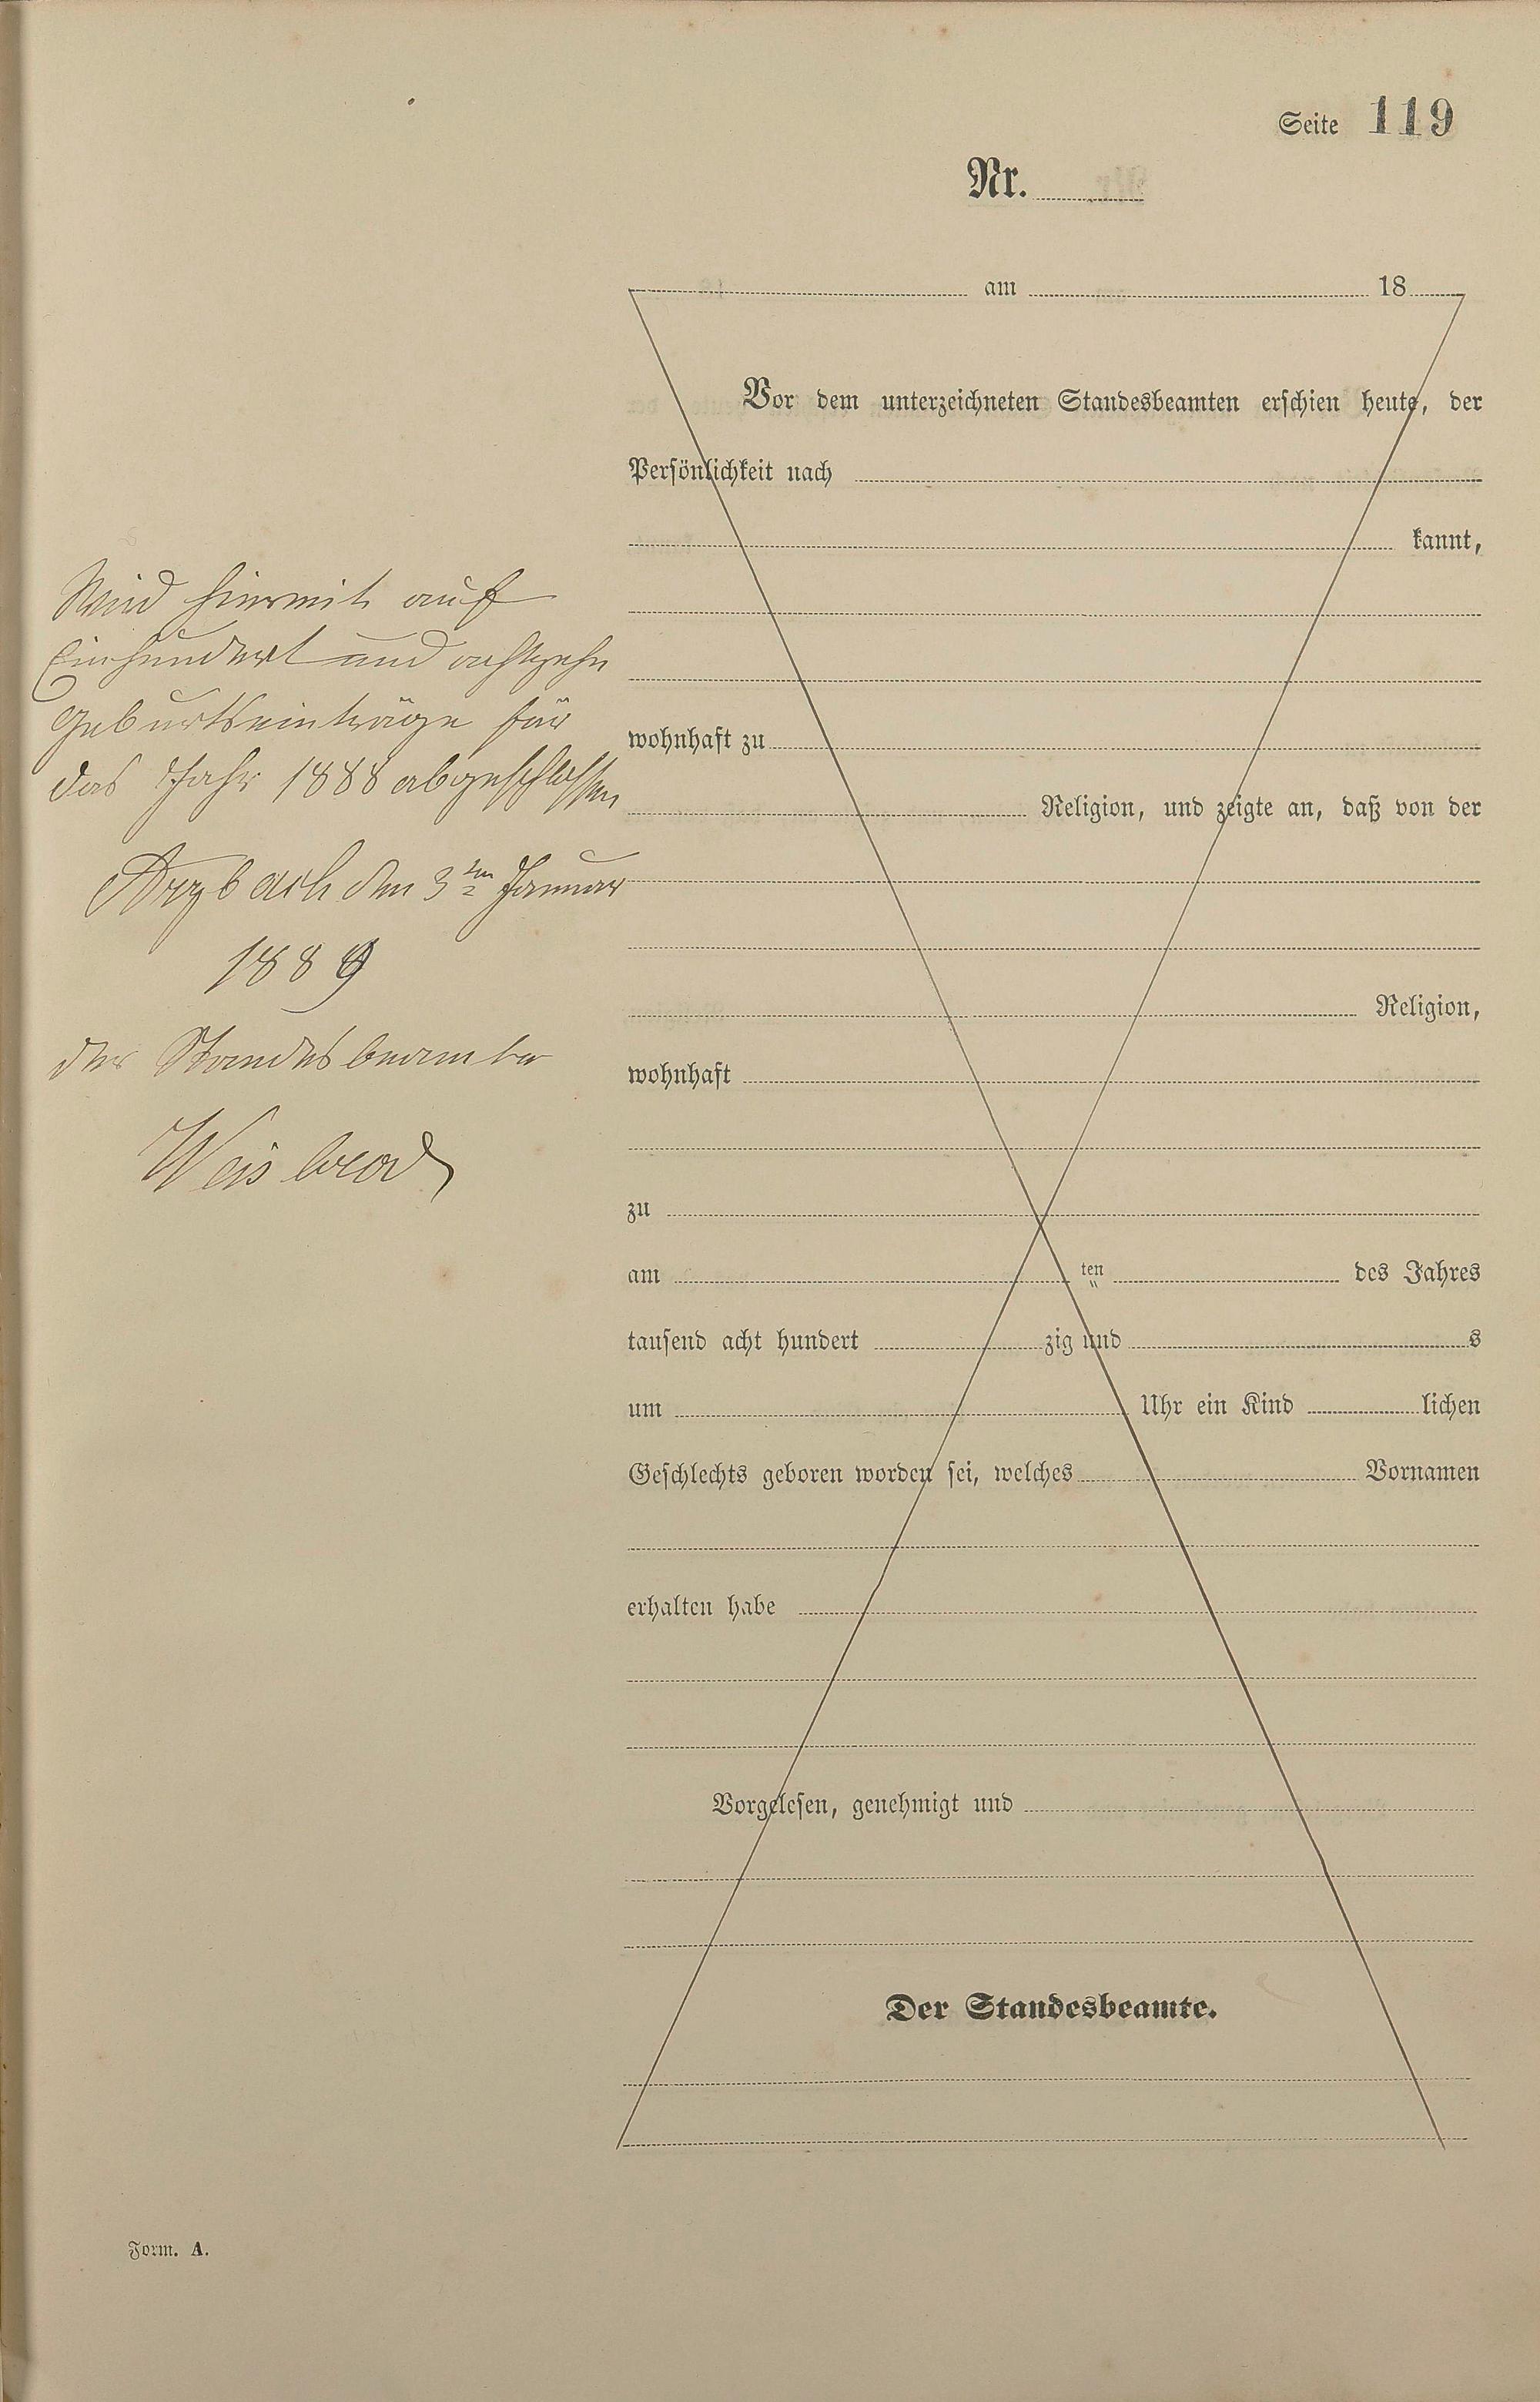 Seite 119
Nr.
am 18
Vor dem unterzeichneten Standesbeamten erschien heute, der
Persönlichkeit nach
kannt,
wohnhaft zu
Religion, und zeigte an, daß von der
Religion,
wohnhaft
zu
am ten des Jahres
tausend acht hundert zig und s
um Uhr ein Kind lichen
Geschlechts geboren worden sei, welches Vornamen
erhalten habe
Vorgelesen, genehmigt und
Der Standesbeamte.
Wird hiermit auf
Einhundert und achtzehn
Geburtseinträge für
das Jahr 1888 abgeschlossen
Arzbach den 3ten Januar
1889
der Standesbeamte
Weisbrod
Form. A.